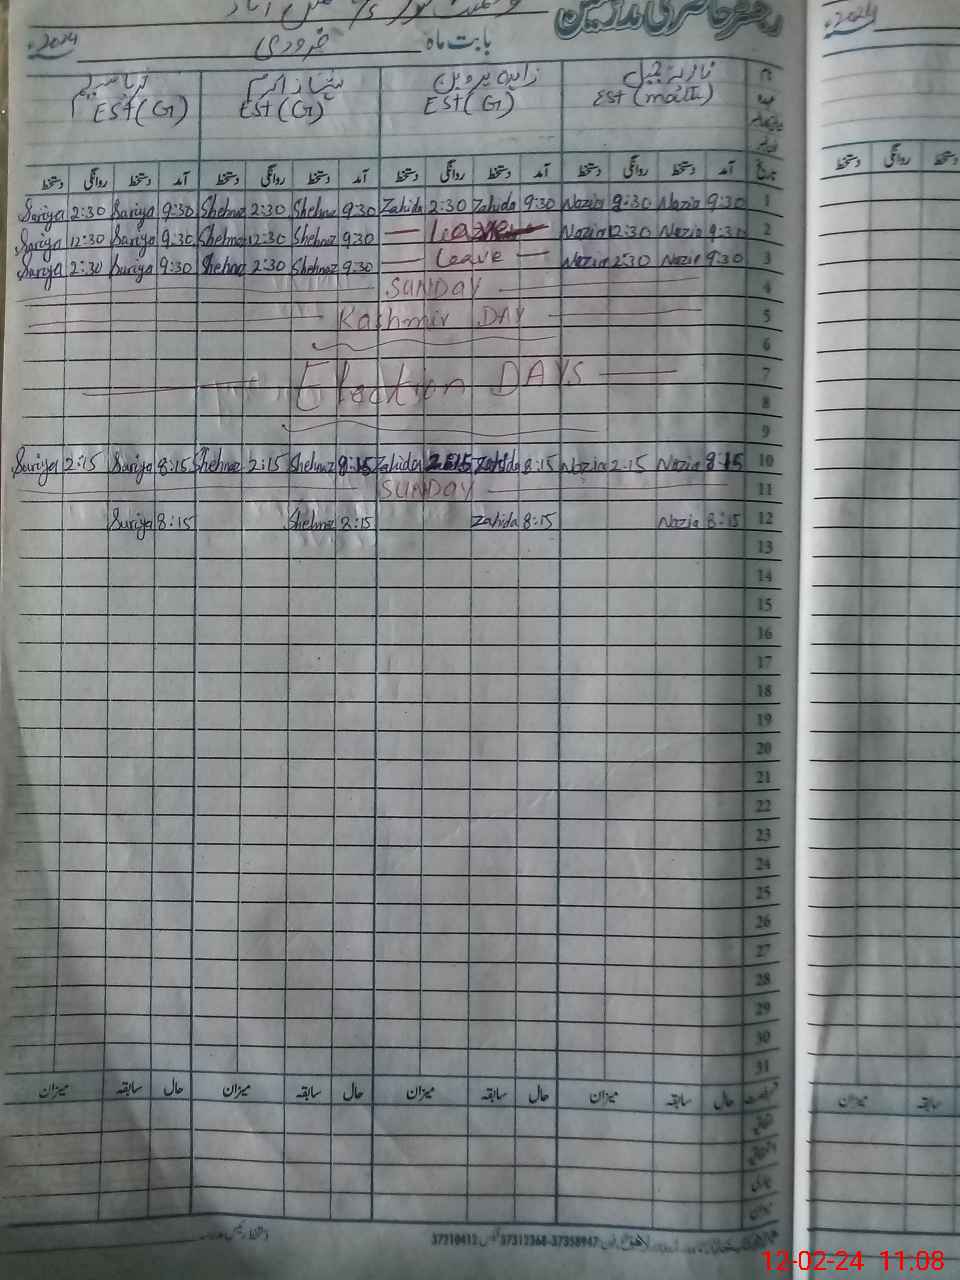 رجسٹر حاضری مدرسین
2024ء بابت ماہ فروری 2024ء
نازیہ جمیل زاہدہ پروین شہناز اکرم ثریا نسیم
EST (math) EST (G) EST (G) EST (G)
تاریخ آمد دستخط روانگی دستخط آمد دستخط روانگی دستخط آمد دستخط روانگی دستخط آمد دستخط روانگی دستخط
دستخط روانگی دستخط
Suriya 2:30 Suriya 9:30 Shehnaz 2:30 Shehnaz 9:30 Zahida 2:30 Zahida 9:30 Nazia 2:30 Nazia 9:30 1
Suriya 12:30 Suriya 9:30 Shehnaz 12:30 Shehnaz 9:30 — Leave — Nazia 12:30 Nazia 9:30 2
Suriya 2:30 Suriya 9:30 Shehnaz 2:30 Shehnaz 9:30 — Leave — Nazia 2:30 Nazia 9:30 3
SUNDAY 4
Kashmir DAY 5
6
Election DAYS 7
8
9
Suriya 2:15 Suriya 8:15 Shehnaz 2:15 Shehnaz 8:15 Zahida 2:15 Zahida 8:15 Nazia 2:15 Nazia 8:15 10
SUNDAY 11
Suriya 8:15 Shehnaz 8:15 Zahida 8:15 Nazia 8:15 12
13
14
15
16
17
18
19
20
21
22
23
24
25
26
27
28
29
30
31
حال سابقہ میزان حال سابقہ میزان حال سابقہ میزان حال سابقہ میزان
سابقہ میزان
37310412 37312368-37358947
12-02-24 11.08